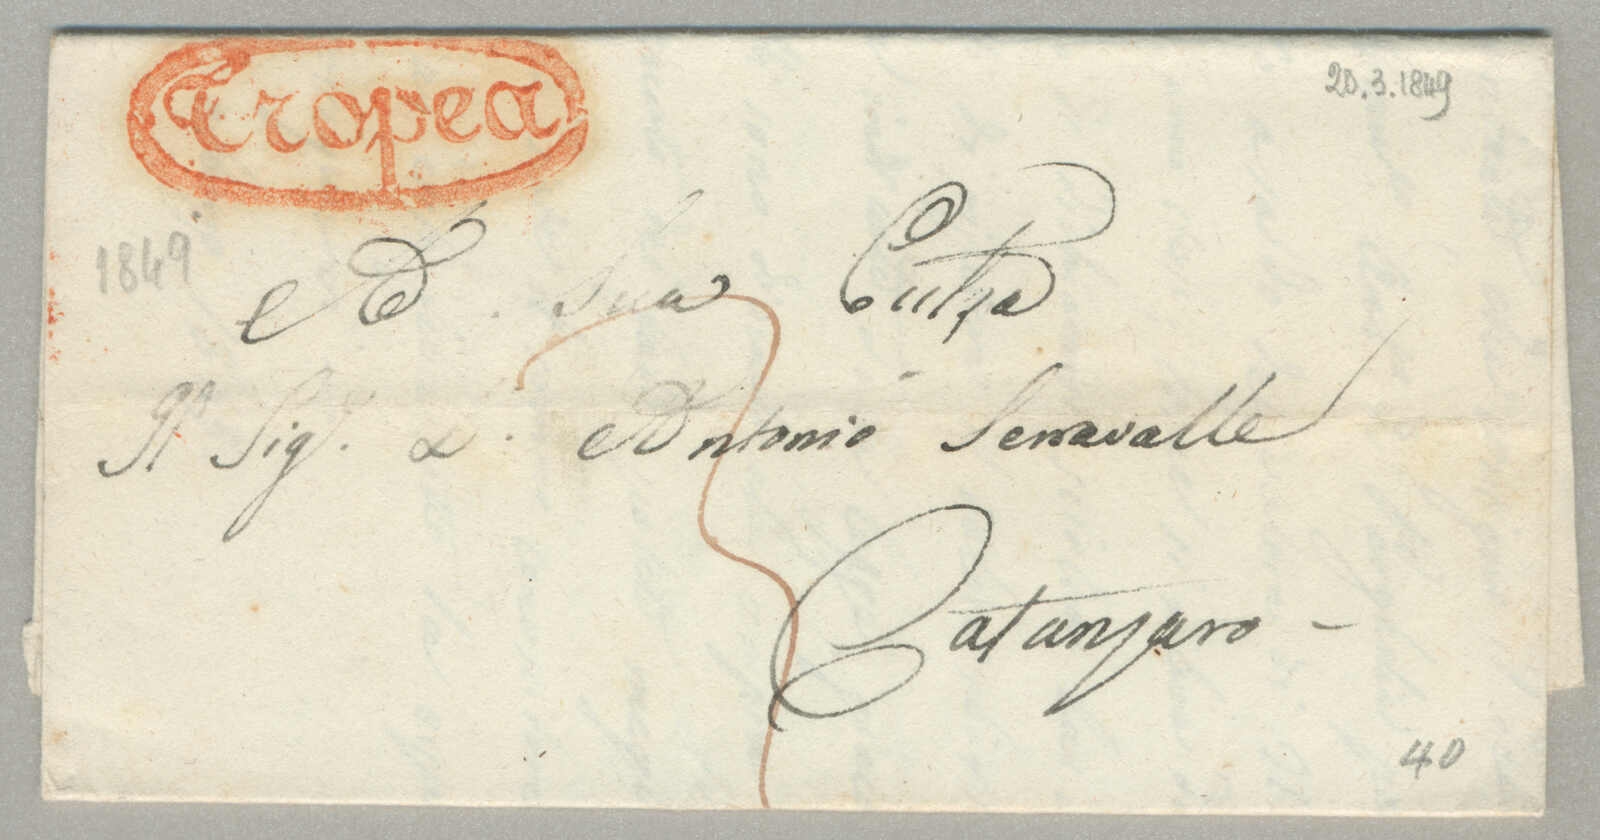 Tropea
20.3.1849
1849
A Sua
Il Sig. D. Antonio Serravalle
Catanzaro -
40